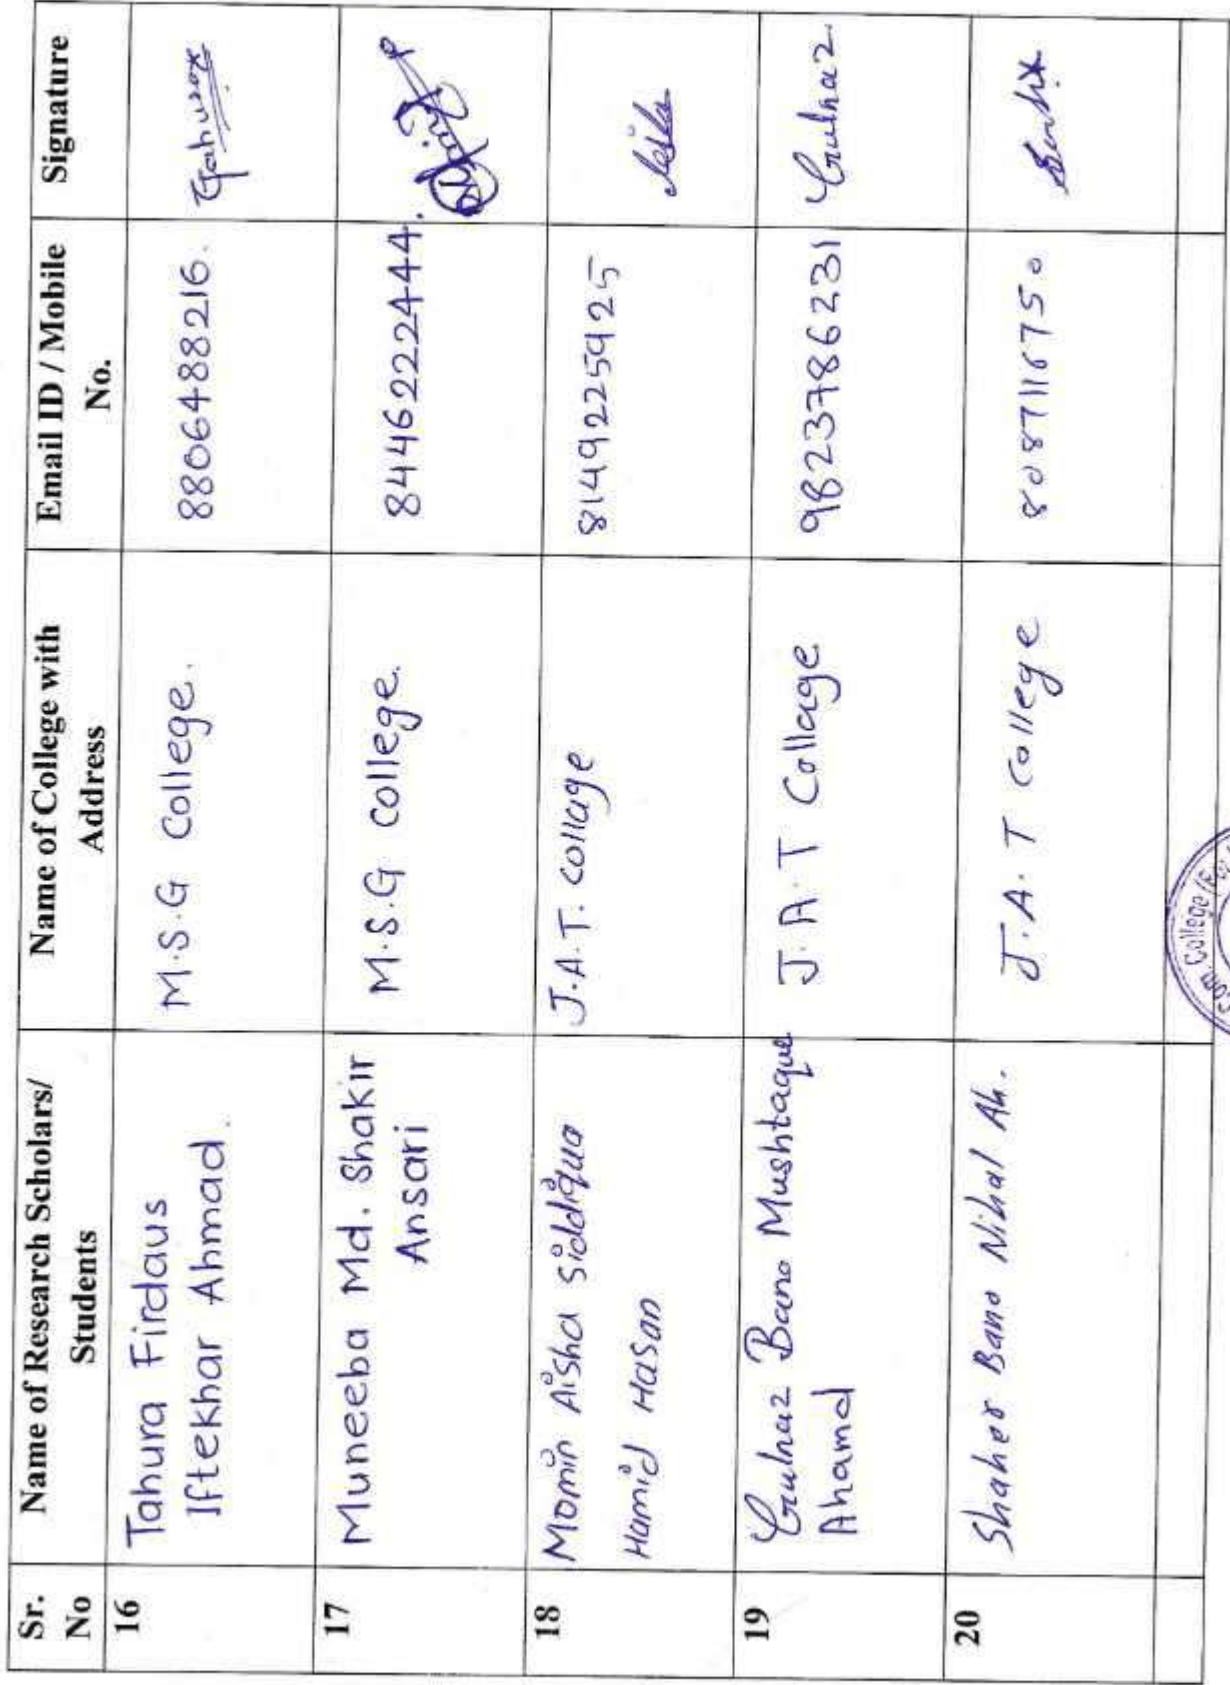 Sr. No
Name of Research Scholars/ Students
Name of College with Address
Email ID / Mobile No.
Signature
16
Tahura Firdaus
Iftekhar Ahmad.
M.S.G College.
8806488216.
17
Muneeba Md. Shakir
Ansari
M.S.G college.
8446222444.
18
Momin Aisha Siddiqua
Hamid Hasan
J.A.T. collage
8149225925
19
Gulnaz Bano Mushtaque
Ahamd
J.A.T Collage
9823786231
Gulnaz
20
Shaher Bano Nihal Ah.
J.A.T College
8087116750
Com. College